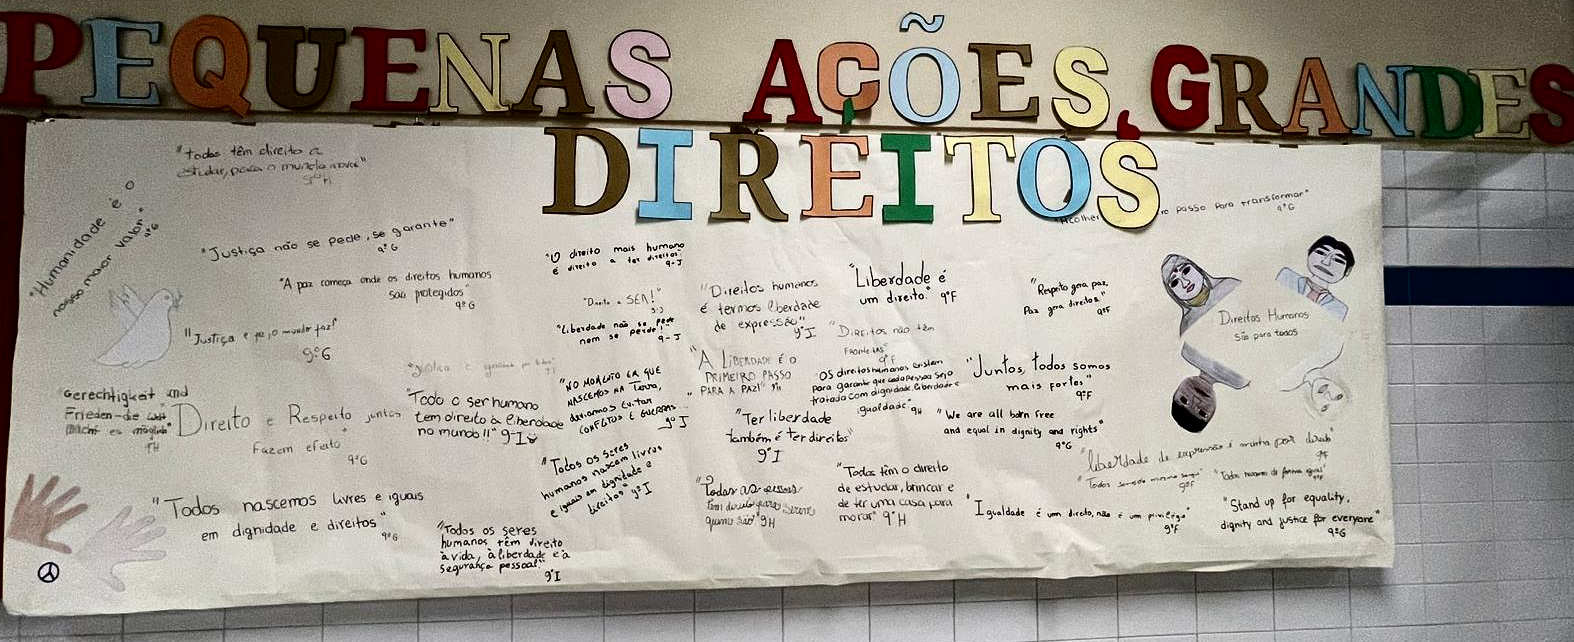 PEQUENAS AÇÕES, GRANDES
DIREITOS
"Todos têm direito a
estudar, para o mundo
9ºH
"Humanidade é o
nosso maior valor"
9ºG
"Justiça não se pede, se garante"
9ºG
"A paz começa onde os direitos humanos
são protegidos"
9ºG
"Justiça e paz, o mundo faz!"
9ºG
Gerechtigkeit und
Frieden-die
macht es möglich"
"Direito e Respeito juntos
Fazem efeito"
9ºG
"Todos nascemos livres e iguais
em dignidade e direitos"
9ºG
"O direito mais humano
é direito a ter direitos"
9-J
SER!"
"Liberdade não se pede
nem se perde!"
9-J
"Todo o ser humano
tem direito à liberdade
no mundo!!" 9-I
"NO MOMENTO EM QUE
NASCEMOS NA Terra,
devíamos Evitar
CONFLITOS E GUERRAS"
9º I
"Todos os seres
humanos nascem livres
e iguais em dignidade e
direitos" 9º I
"Todos os seres
humanos têm direito
à vida, à liberdade e à
segurança pessoal"
9ºI
"Direitos humanos
é termos liberdade
de expressão"
9ºI
"A LIBERDADE É O
PRIMEIRO PASSO
PARA A PAZ!"
"Ter liberdade
também é ter direitos"
9ºI
"Todas as
9H
"Liberdade é
um direito." 9ºF
"DIREITOS não têm
FRONTEIRAS"
9ºF
"OS direitos humanos existem
para garantir que cada pessoa seja
tratada com dignidade, liberdade e
igualdade" 9H
"Todos têm o direito
de estudar, brincar e
de ter uma casa para
morar" 9ºH
"Acolher passo para transformar"
9ºG
"Respeito gera paz,
Paz gera direitos."
9ºF
Direitos Humanos
São para todos
"Juntos, todos somos
mais fortes"
9ºF
"We are all born free
and equal in dignity and rights"
9ºG
"liberdade de expressão é minha por direito"
9ºF
"Todos
9ºF
"Todos nascemos de forma igual"
"Igualdade é um direito, não é um privilégio"
9ºF
"Stand up for equality,
dignity and justice for everyone"
9ºG